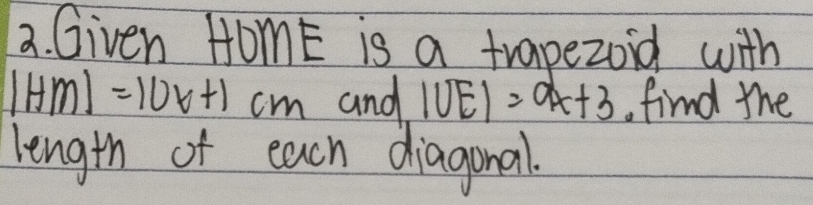 2. Given HOME is a trapezoid with
|HM| = 10x+1 cm and |OE| = 9x+3. find the
length of each diagonal.